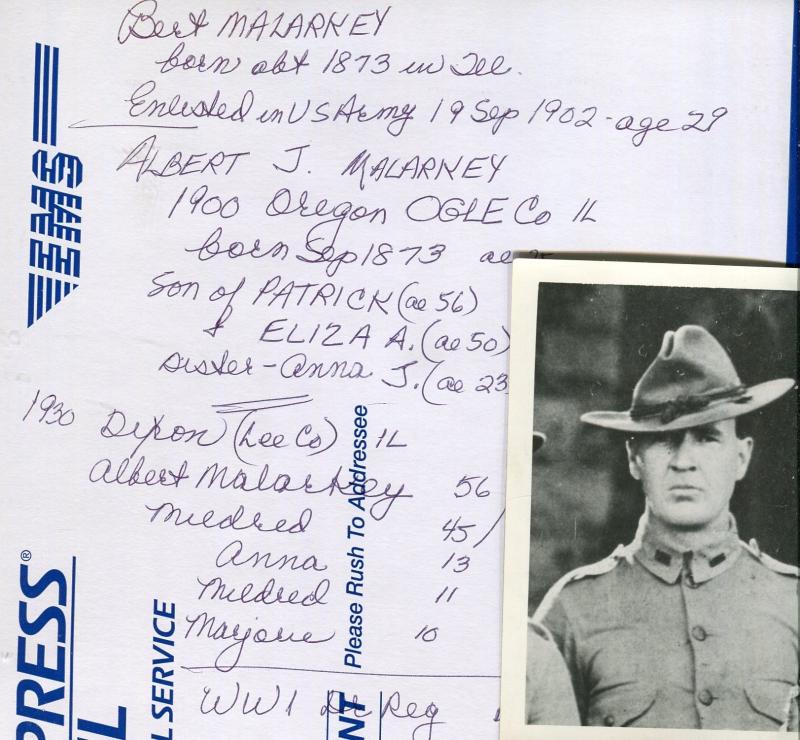 Bert MALARKEY
born abt 1873 in Ill.
Enlisted in US Army 19 Sep 1902 - age 29
ALBERT J. MALARKEY
1900 Oregon OGLE Co IL
born Sep 1873 ae
Son of PATRICK (ae 56)
& ELIZA A. (ae 50)
sister - Anna J. (ae 23
1930 Dixon (Lee Co) IL
Albert Malarkey 56
Mildred 45/
Anna 13
Mildred 11
Marjorie 10
WW1 Dr Reg
EMS
PRESS®
L SERVICE
Please Rush To Addressee
NT